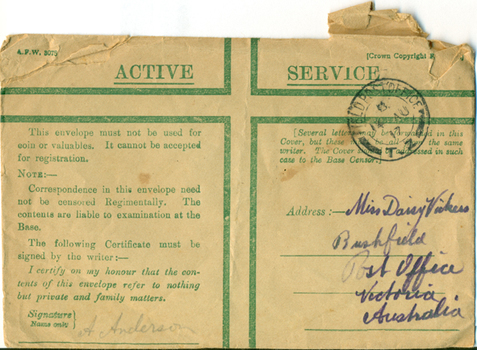 A.F.W. 3078
[Crown Copyright
ACTIVE SERVICE
FIELD POST OFFICE
17
T.Z
This envelope must not be used for
coin or valuables. It cannot be accepted
for registration.
NOTE:—
Correspondence in this envelope need
not be censored Regimentally. The
contents are liable to examination at the
Base.
The following Certificate must be
signed by the writer:—
I certify on my honour that the con-
tents of this envelope refer to nothing
but private and family matters.
Signature
Name only
A. Anderson
[Several letters may be forwarded in this
Cover, but these must be all from the same
writer. The Cover should be addressed in such
case to the Base Censor.]
Address:— Miss Daisy Vickers
Bushfield
Post Office
Victoria
Australia